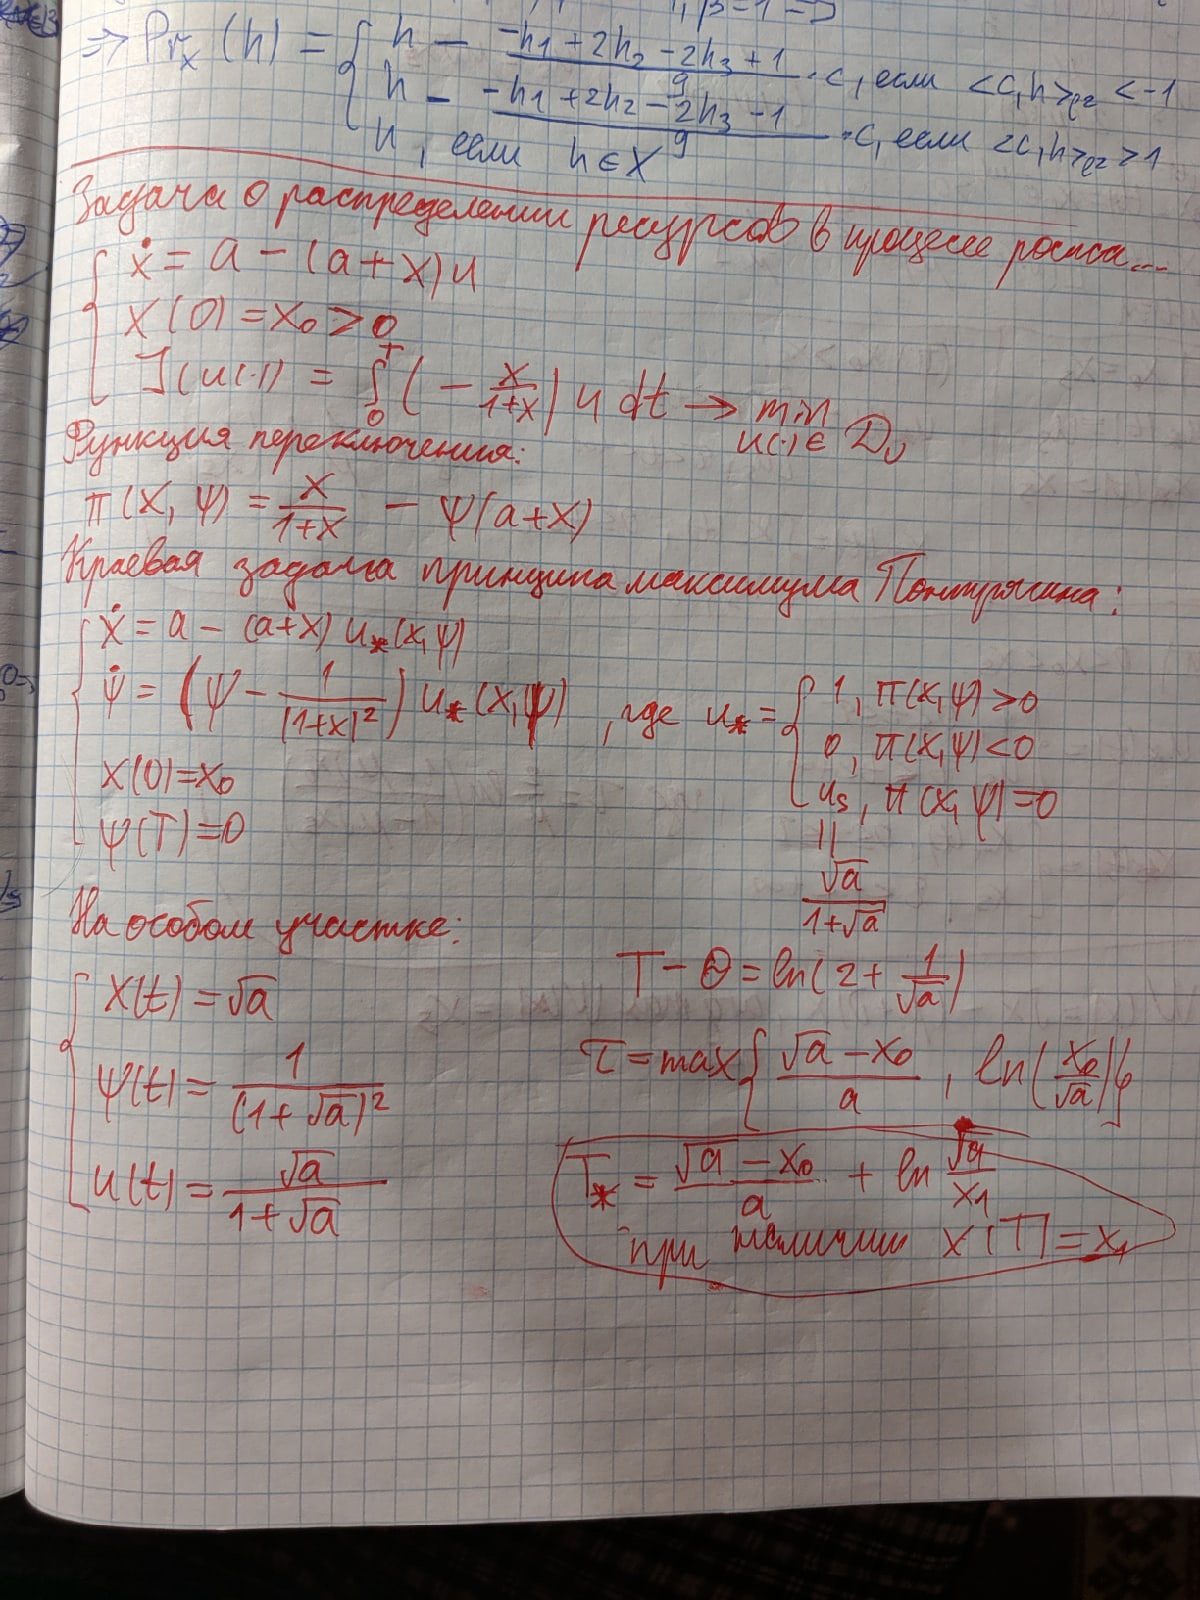 ⇒ Pr_x (h) = { h − (−h₁ + 2h₂ − 2h₃ + 1)/9 · c, если <c,h>_ℓ² < −1
h − (−h₁ + 2h₂ − 2h₃ − 1)/9 · c, если <c,h>_ℓ² > 1
h, если h ∈ X
Задача о распределении ресурсов в процессе роста...
{ ẋ = a − (a + x) u
x(0) = x₀ > 0
J(u(·)) = ∫₀ᵀ (− x/(1+x)) u dt → min u(·) ∈ D_U
Функция переключения:
π(x, ψ) = x/(1+x) − ψ(a+x)
Краевая задача принципа максимума Понтрягина:
{ ẋ = a − (a+x) u_*(x,ψ)
ψ̇ = (ψ − 1/(1+x)²) u_*(x,ψ), где u_* = { 1, π(x,ψ) > 0
0, π(x,ψ) < 0
x(0) = x₀
u_s, π(x,ψ) = 0
ψ(T) = 0
||
√a/(1+√a)
На особом участке:
{ x(t) = √a
T − Θ = ln(2 + 1/√a)
ψ(t) = 1/(1+√a)²
τ = max{ (√a − x₀)/a, ln(x₀/√a) }
u(t) = √a/(1+√a)
T_* = (√a − x₀)/a + ln √a/x₁
при наличии x(T) = x₁